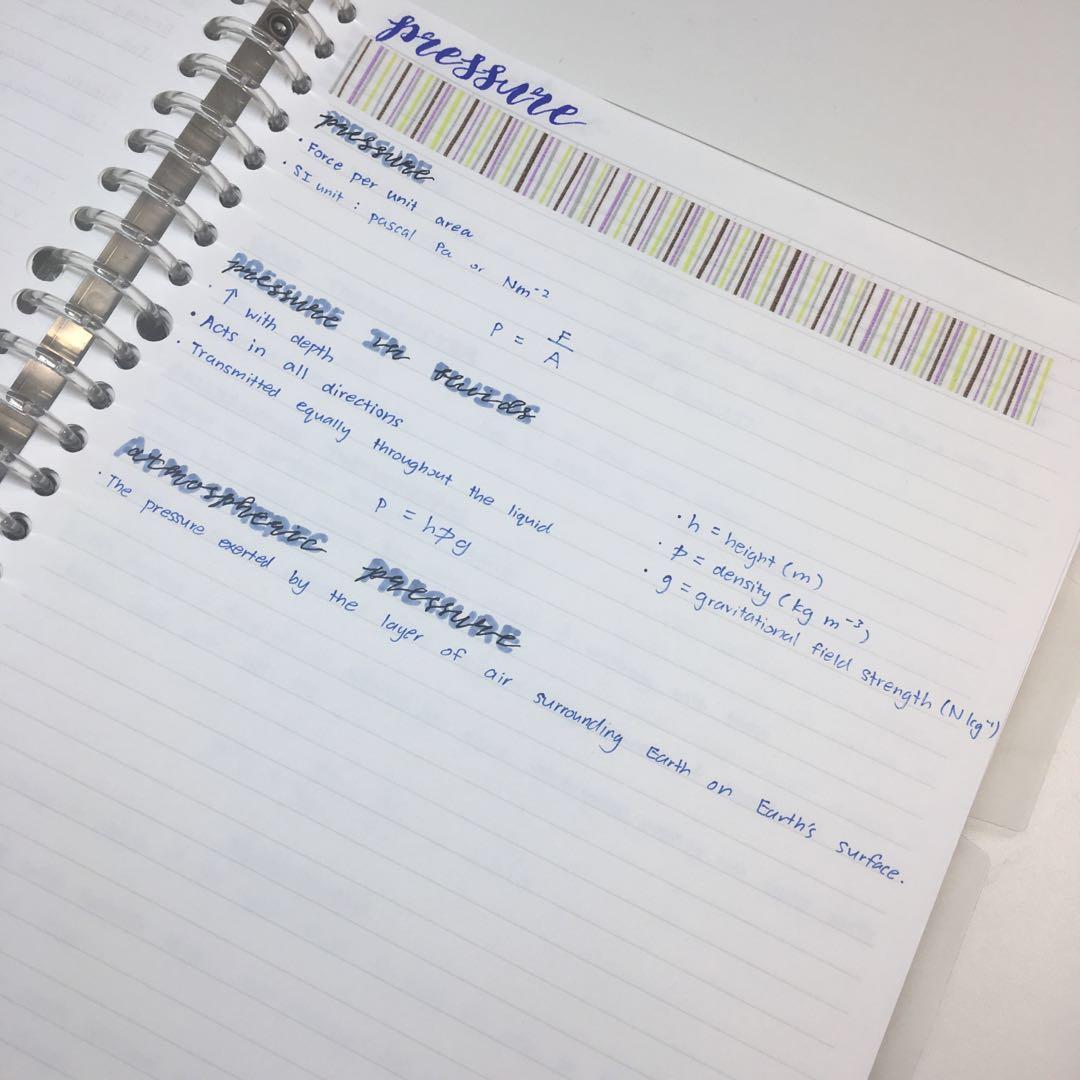 pressure
pressure
• Force per unit area
• SI unit : pascal Pa or Nm⁻²
P = F/A
pressure in fluids
• ↑ with depth
• Acts in all directions
• Transmitted equally throughout the liquid
P = hρg
• h = height (m)
• ρ = density (kg m⁻³)
• g = gravitational field strength (N kg⁻¹)
atmospheric pressure
• The pressure exerted by the layer of air surrounding Earth on Earth's surface.